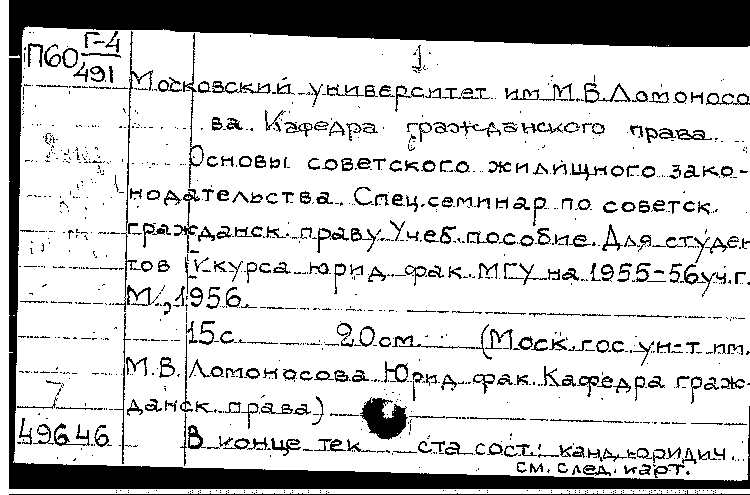 П60 Г-4
491
1
Московский университет им М.В.Ломоносо
ва. Кафедра гражданского права.
Основы советского жилищного зако-
нодательства. Спец.семинар по советск.
гражданск. праву. Учеб.пособие. Для студен
тов IV курса юрид. фак. МГУ на 1955-56 уч.г.
М., 1956.
15 с. 20 см. (Моск. гос. ун-т им.
М.В. Ломоносова. Юрид. фак. Кафедра граж-
данск. права)
7
49646
В конце тек ста сост.: канд. юридич.
см. след. карт.